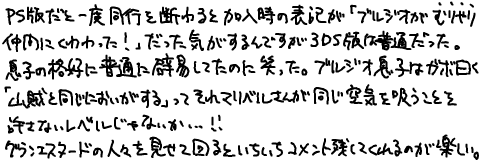 PS版だと一度同行を断わると加入時の表記が「ブルジオがむりやり
仲間にくわわった!」だった気がするんですが3DS版は普通だった。
息子の格好に普通に辟易してたのに笑った。ブルジオ息子はガボ曰く
「山賊と同じにおいがする」ってそれマリベルさんが同じ空気を吸うことを
許さないレベルじゃないか…!!
グランエスタードの人々を見せて回るといちいちコメント残してくれるのが楽しい。